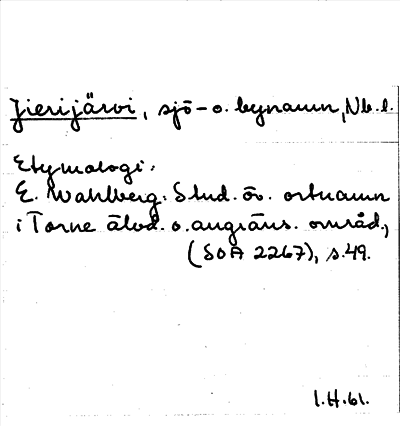 Jierijärvi, sjö- o. bynamn, Nb. l.
Etymologi:
E. Wahlberg: Stud. öv. ortnamn
i Torne älvd. o. angräns. områd.,
(SOA 2267), s. 49.
1.H.61.